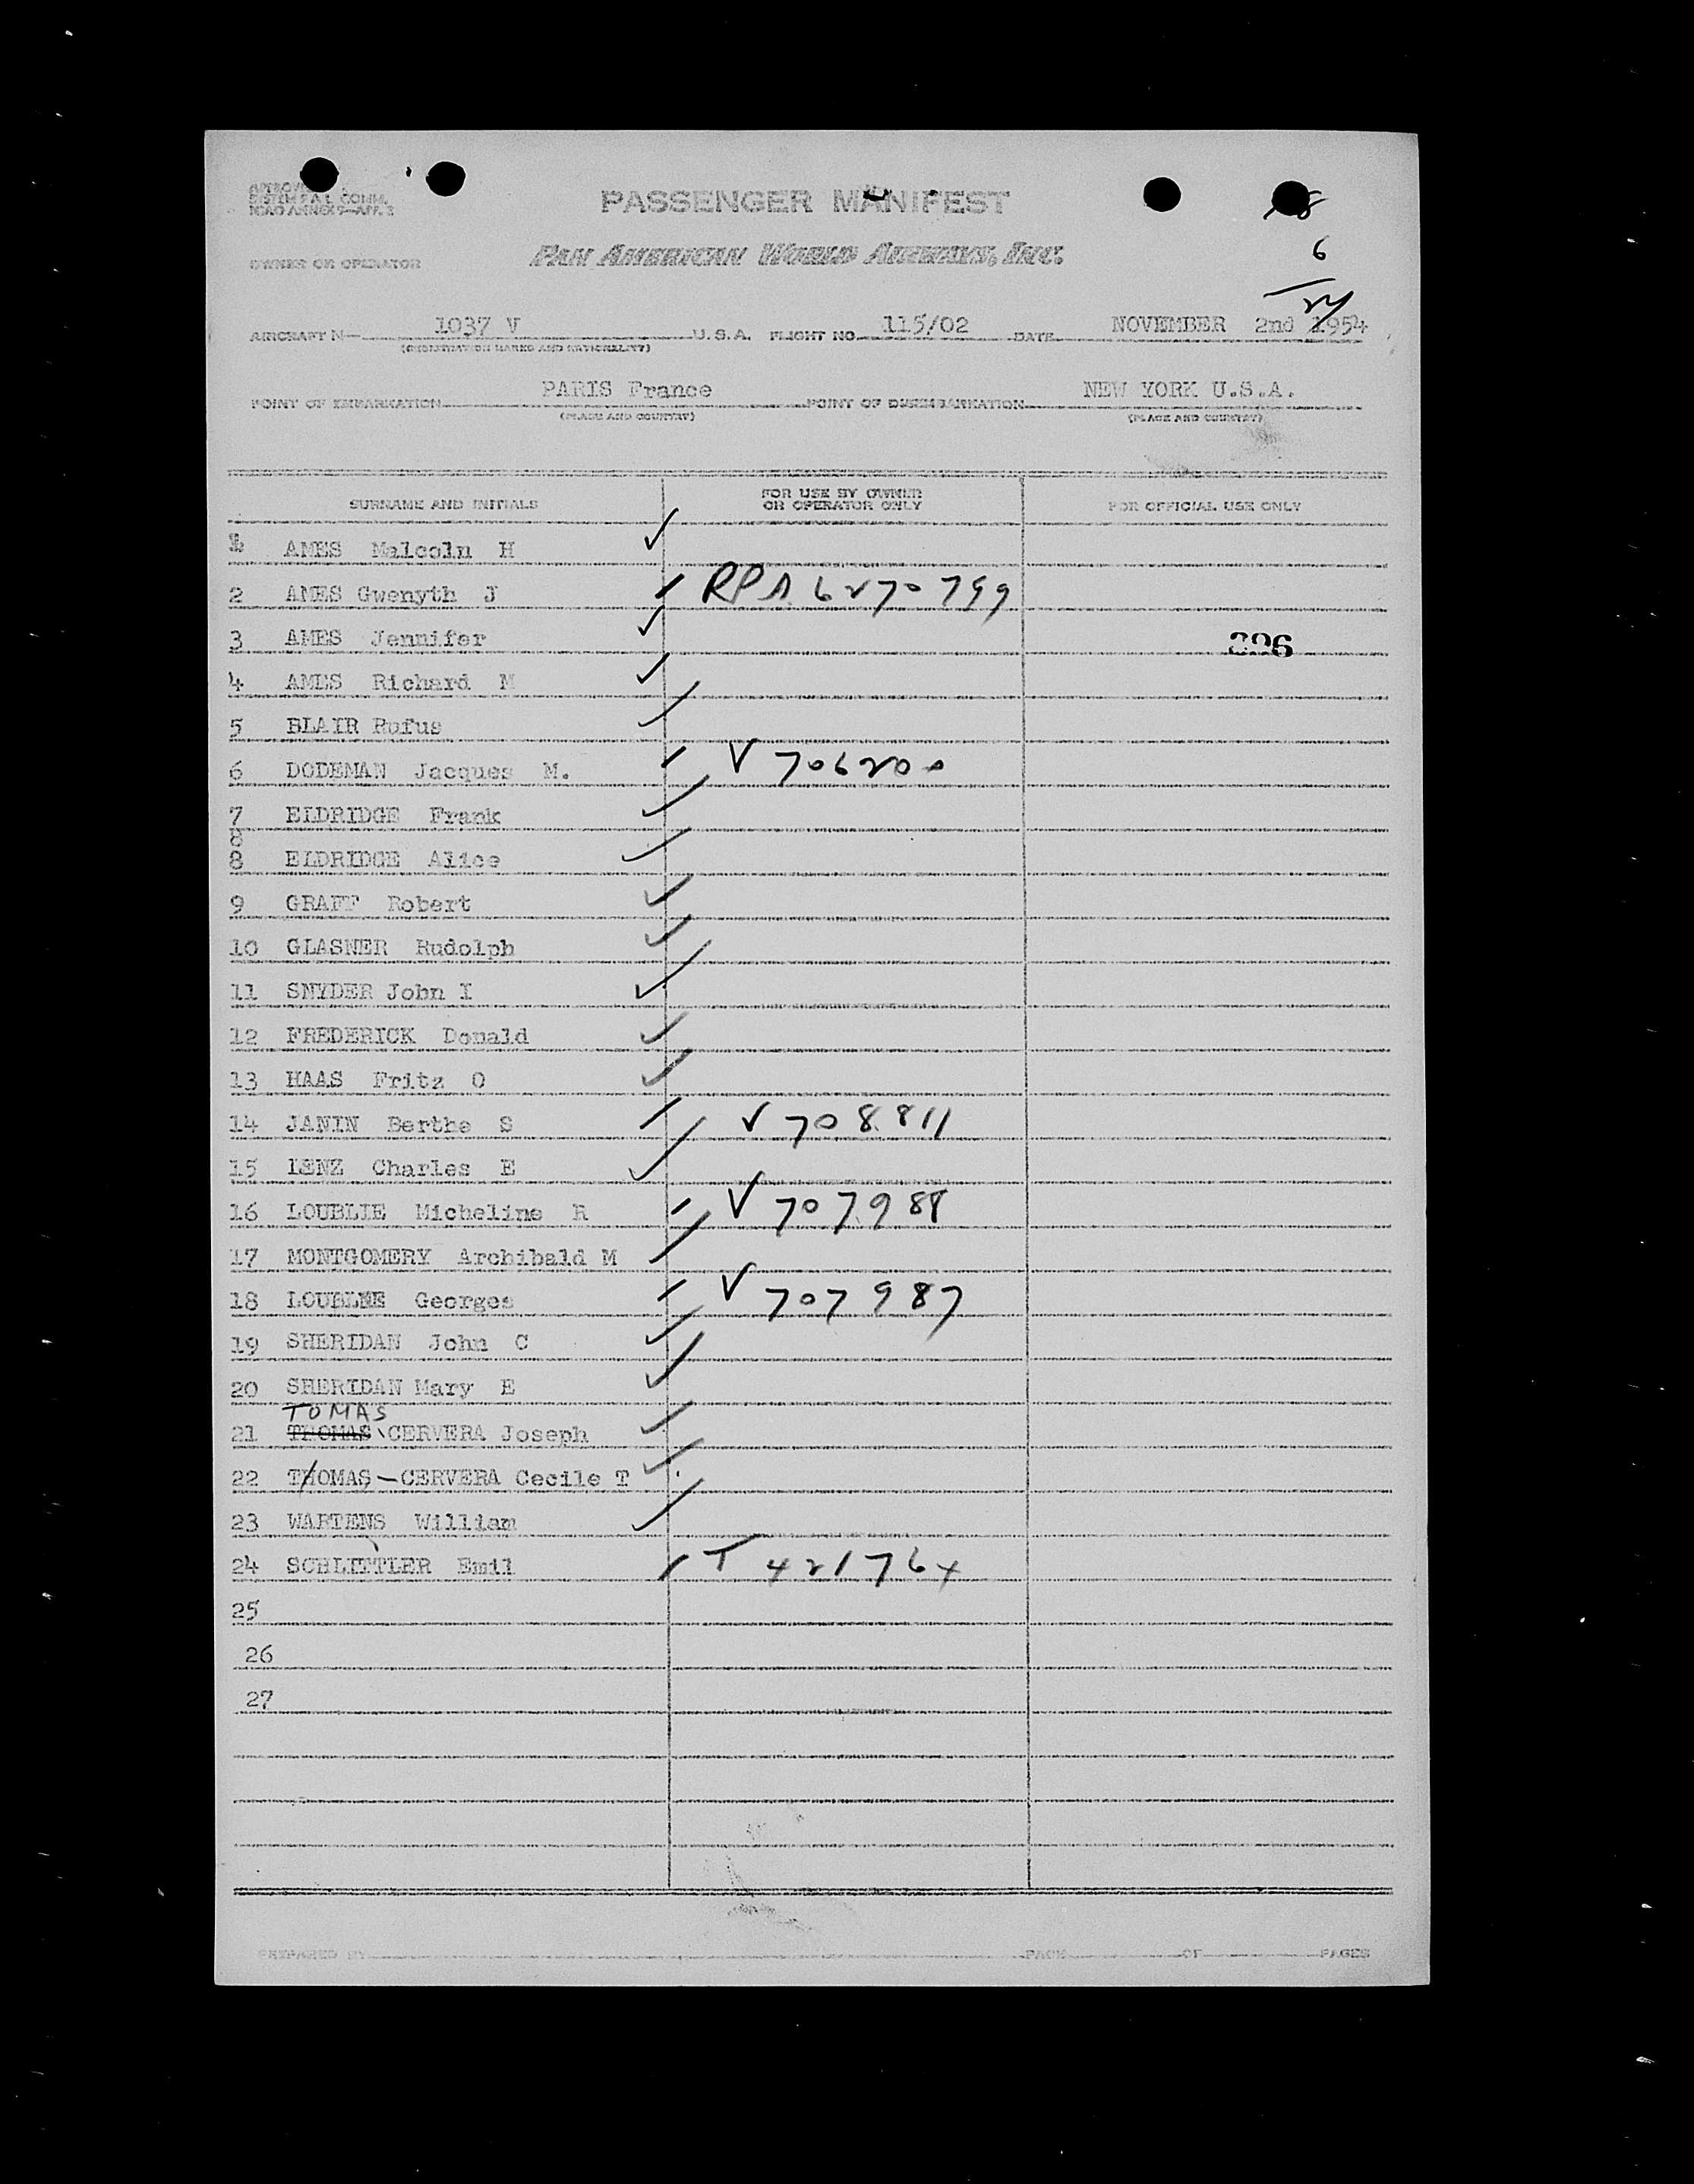 APPROVED
SYSTEM F.A.L. COMM.
ICAO ANNEX 9—APP. 2
PASSENGER MANIFEST
18
6
24
OWNER OR OPERATOR
PAN AMERICAN WORLD AIRWAYS, INC.
AIRCRAFT N— 1037 V U.S.A. FLIGHT NO. 115/02 DATE NOVEMBER 2nd 1954
(REGISTRATION MARKS AND NATIONALITY)
POINT OF EMBARKATION PARIS France POINT OF DISEMBARKATION NEW YORK U.S.A.
(PLACE AND COUNTRY) (PLACE AND COUNTRY)
SURNAME AND INITIALS FOR USE BY OWNER OR OPERATOR ONLY FOR OFFICIAL USE ONLY
1 AMES Malcolm H ✓
2 AMES Gwenyth J RPA 6270799
3 AMES Jennifer ✓ 396
4 AMES Richard M ✓
5 BLAIR Rufus ✓
6 DODEMAN Jacques M. V 706200
7 ELDRIDGE Frank ✓
8
8 ELDRIDGE Alice ✓
9 GRAFF Robert ✓
10 GLASNER Rudolph ✓
11 SNYDER John I ✓
12 FREDERICK Donald ✓
13 HAAS Fritz O ✓
14 JANIN Berthe S V 708811
15 LENZ Charles E ✓
16 LOUBLIE Micheline R V 707988
17 MONTGOMERY Archibald M ✓
18 LOUBLIE Georges V 707987
19 SHERIDAN John C ✓
20 SHERIDAN Mary E ✓
TOMAS
21 THOMAS CERVERA Joseph ✓
22 THOMAS—CERVERA Cecile T ✓
23 WARTENS William ✓
24 SCHLITTLER Emil T 421764
25
26
27
PREPARED BY PAGE OF PAGES